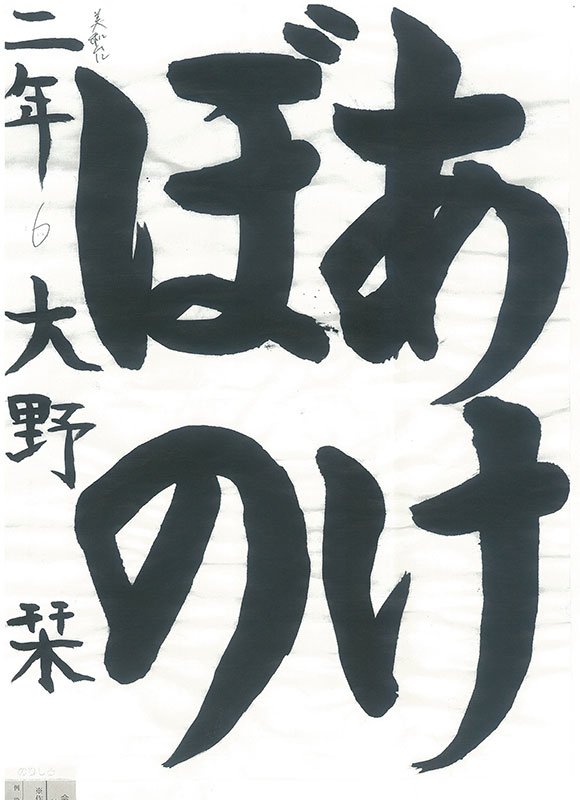 あけ
ぼの
美和台
二年6大野栞